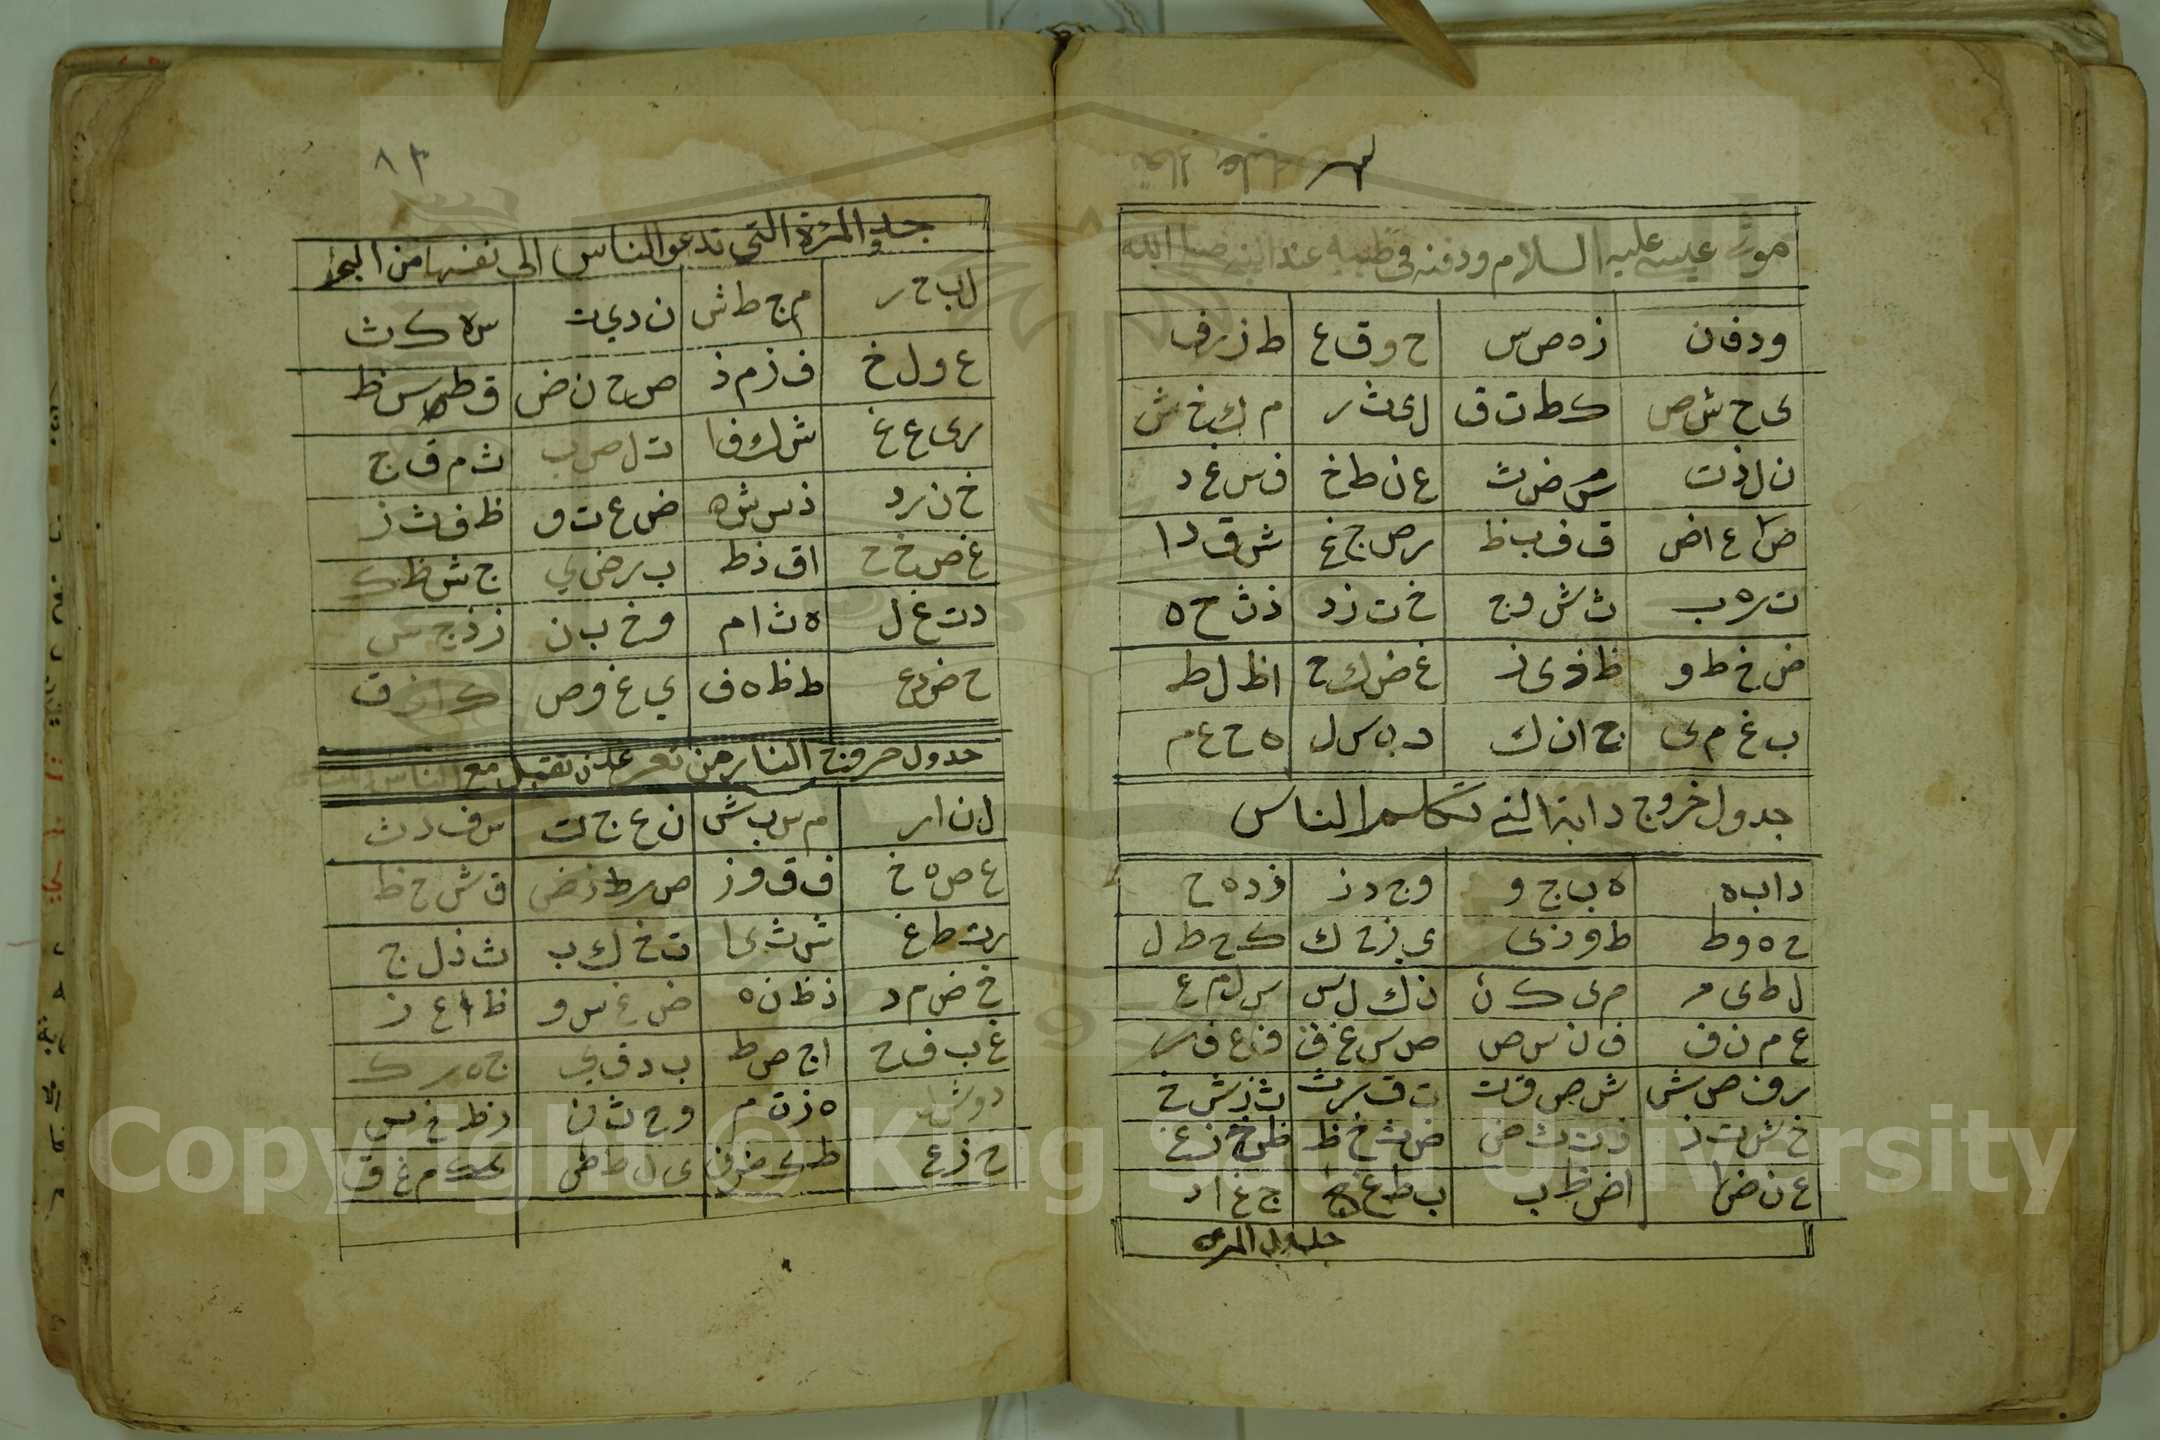 موت عيسى عليه السلام ودفنه في طيبه عند
ودفن زه ص س ح و ق ع ط ز ر ف
ى ح ش ص ك ط ت ق ل ى ث ر م ك خ ش
ن ل ذ ت س م ض ث ع ن ظ خ ف س غ د
ص ع ا ض ق ف ب ظ ر ص ج غ ش ق د ا
ت ر ه ب ث ش و ج خ ت ز د ذ ث ح ه
ض خ ط و ظ ذ ى ز غ ض ك ح ا ظ ل ط
ب غ م ى ج ا ن ك د ب س ل ه ج ع م
جدول خروج دابة التي تكلم الناس
د ا ب ه ه ب ج و و ج د ز ز د ه ح
ح ه و ط ط و ز ى ى ز ح ك ك ح ط ل
ل ط ى م م ى ك ن ن ك ل س س ل م ع
ع م ن ف ف ن س ص ص س ع ق ق ع ف ر
ر ف ص ش ش ص ق ت ت ق ر ث ث ر ش خ
خ ش ت ذ ذ ت ث ض ض ث خ ظ ظ خ ذ غ
غ ذ ض ا ا ض ظ ب ب ظ غ ج ج غ ا د
جدول المرة
٨٣
جدول المرة التي تدعو الناس الى نفسها من البحر
ل ب ح ر م ج ط ش ن د ي ت س ه ك ث
ع و ل خ ف ز م ذ ص ح ن ض ق ط س ظ
ر ى ع غ ش ك ف ا ت ل ص ب ث م ق ج
خ ن ر د ذ س ش ه ض ع ت و ظ ف ث ز
غ ص خ ح ا ق ذ ط ب ر ض ي ج ش ظ ك
د ت غ ل ه ث ا م و خ ب ن ز ذ ج س
ح ض د ع ط ظ ه ف ي غ و ص ك ا ز ق
جدول خروج النار من قعر عدن تقبل مع الناس
ل ن ا ر م س ب ش ن ع ج ت س ف د ث
ع ص ه خ ف ق و ذ ص ر ز ض ق ش ح ظ
ر ت ط غ ش ث ى ا ت خ ك ب ث ذ ل ج
خ ض م د ذ ظ ن ه ض غ س و ظ ا ع ز
غ ب ف ح ا ج ص ط ب د ق ي ج ه ر ك
د و ش ل ه ز ت م و ح ث ن ز ط خ س
ح ي ذ ع ط ك ض ف ى ل ظ ص ك م غ ق
Copyright © King Saud University